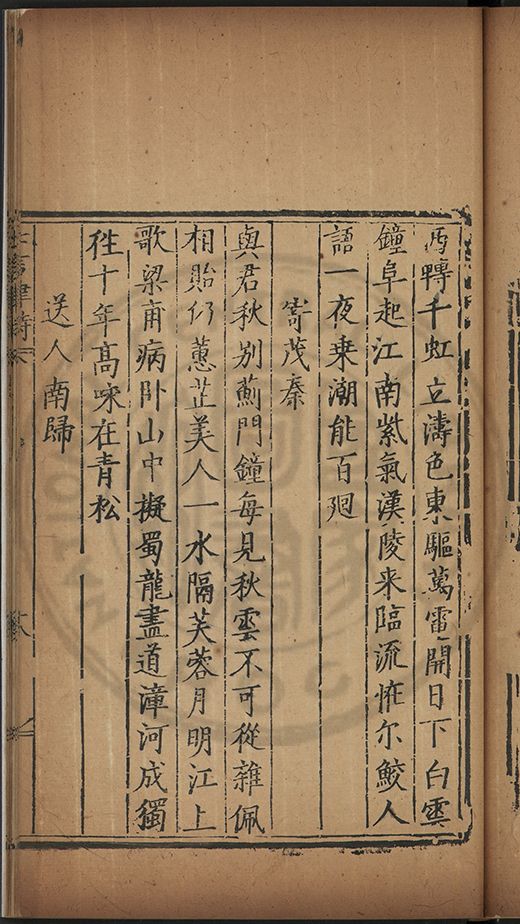 轉千虹立濤色東驅萬雷開日下白雲
鐘阜起江南紫氣漢陵来臨流恠尔鮫人
語一夜乗潮能百廻
寄茂秦
與君秋别薊門鐘每見秋雲不可從雜佩
相貽仍蕙芷美人一水隔芙蓉月明江上
歌梁甫病卧山中擬蜀龍盡道漳河成獨
徃十年髙咏在青松
送人南歸